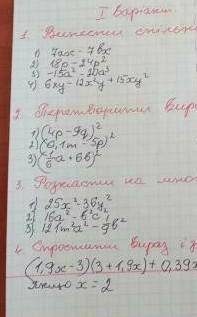 I Варіант.
1. Винести спільн
1) 7ax - 7bx
2) 18p - 24p²
3) -15a² - 20a³
4) 6xy - 12x²y + 15xy²
2. Перетворити вира
1) (4p - 9q)²
2) (0,1m - 5p)²
3) (1/6 a + 6b)²
3. Розкласти на мно
1) 25x² - 36y²
2) 16a² - b²c²
3) 121m²a² - 9b²
4. Спростити вираз і з
(1,9x - 3)(3 + 1,9x) + 0,39x
якщо x = 2